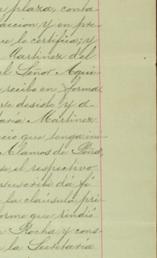 e plaza, conta
accion y en pre
ue lo certifica; y
Martinez del
el Señor Agui
recibe en forma
te desisto y d
ana Martinez
cio que tenga in
Alamos de Peña,
s, el respectivo
suscribo da fé
la cláusula pri
orme que rindió
Rocha y cons
la Secretaría